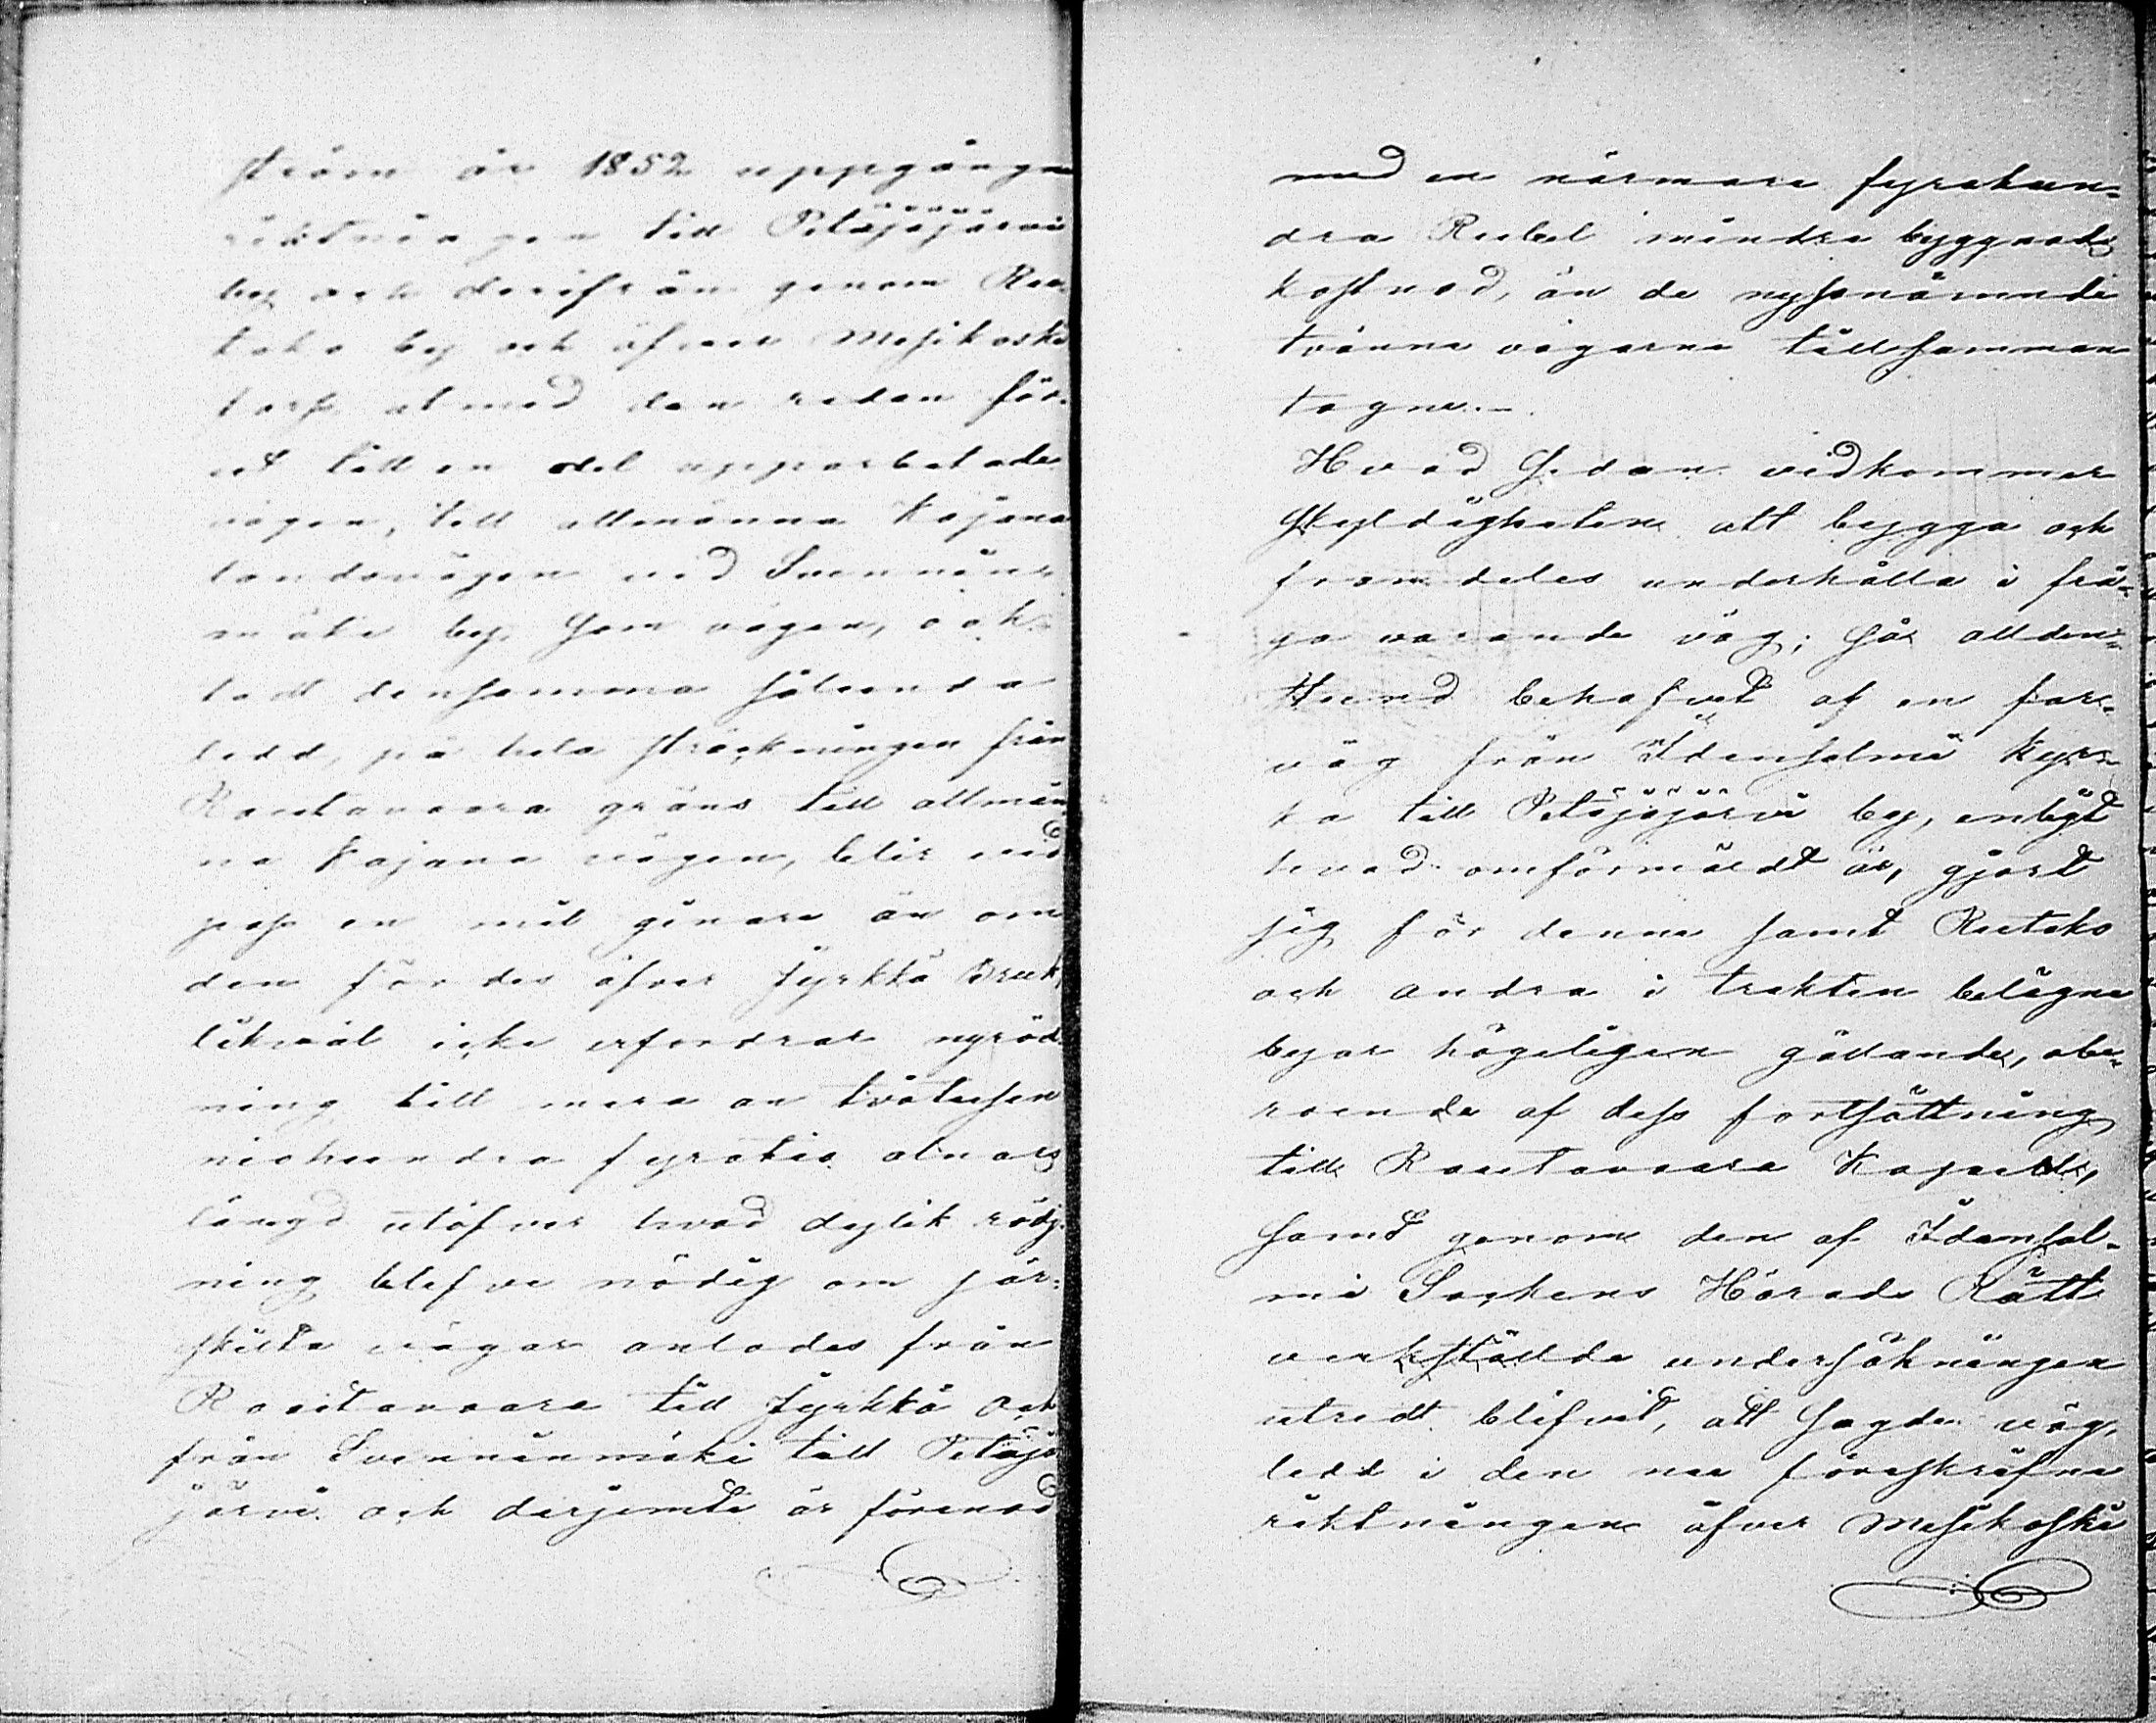 ström år 1852 uppgångne
riktningen till Petäjäjärvi
by och derifrån genom Ru-
tako by och öfver Mesikoski
torp utmed den redan för-
ut till en del upparbetade
vägen, till allmänna Kajana
landsvägen vid Sveninin-
mäki by. Som vägen, i ak-
tadt densamma sålunda
ledd, på hela sträckningen från
Rautavaara gräns till allmän-
na Kajana vägen, blir vid
pass en mil ginare än om
den fördes öfver Jyrkkä Bruk,
likväl icke erfordrar nyröd-
ning till mera än tvåtusen
niohundra fyratio alnars
längd utöfver hvad dylik rödj-
ning blefve nödig om sär-
skilta vägar anlades från
Rautavaara till Jyrkkä och
från Svenininmäki till Petäjä-
järvi och derjemte är förenad
med en närmare fyrahun-
dra Rubel mindre byggnads
kostnad, än de nyssnämnde
tvänne vägarne tillsamman
tagne.-
Hvad Sedan vidkommer
Skyldigheten att bygga och
framdeles underhålla i frå-
ga varande väg; så allden-
stund behofvet af en far-
väg från Idensalmi kyr-
ka till Petäjäjärvi by, enligt
hvad omförmäldt är, gjort
sig för denne samt Rutako
och andra i trakten belägne
byar högeligen gällande, obe-
roende af dess fortsättning
till Rautavaara Kapell,
samt genom den af Idensal-
mi Sockens Härads Rätt
verkställde undersökningen
utredt blifvit, att Sagde väg,
ledd i den nu föreskrifne
riktningen öfver Mesikoski